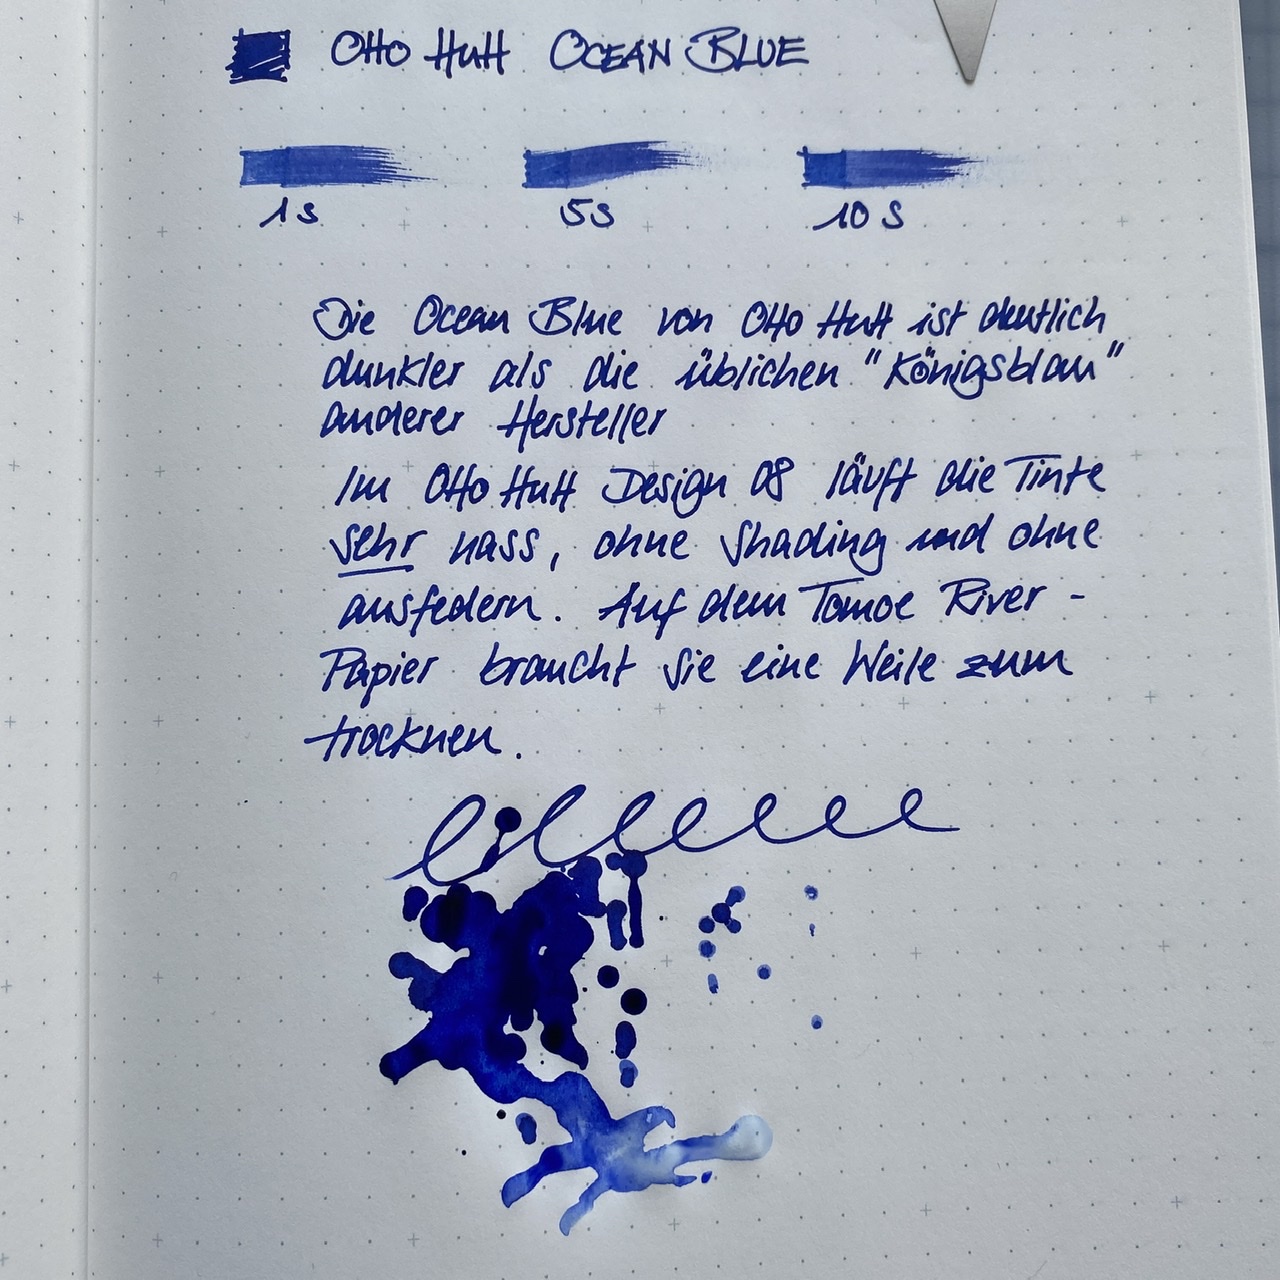 Otto Hutt Ocean Blue
1s 5s 10s
Die Ocean Blue von Otto Hutt ist deutlich
dunkler als die üblichen "Königsblau"
anderer Hersteller
Im Otto Hutt Design 08 läuft die Tinte
sehr nass, ohne Shading und ohne
ausfedern. Auf dem Tomoe River-
Papier braucht sie eine Weile zum
trocknen.